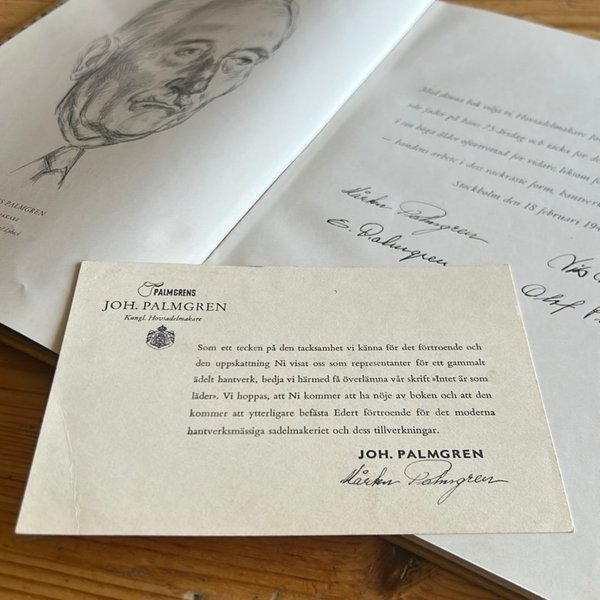 PALMGREN
Med denna bok vilja vi, Hovsadelmakare
vår fader på hans 75-årsdag och tacka för
i sin höga ålder oförtrutet för vidare, liksom
handens arbete i dess vackraste form,
Stockholm den 18 februari 194
Mårten Palmgren
E. Palmgren
Olof
PALMGRENS
JOH. PALMGREN
Kungl. Hovsadelmakare
Som ett tecken på den tacksamhet vi känna för det förtroende och
den uppskattning Ni visat oss som representanter för ett gammalt
ädelt hantverk, bedja vi härmed få överlämna vår skrift »Intet är som
läder». Vi hoppas, att Ni kommer att ha nöje av boken och att den
kommer att ytterligare befästa Edert förtroende för det moderna
hantverksmässiga sadelmakeriet och dess tillverkningar.
JOH. PALMGREN
Mårten Palmgren